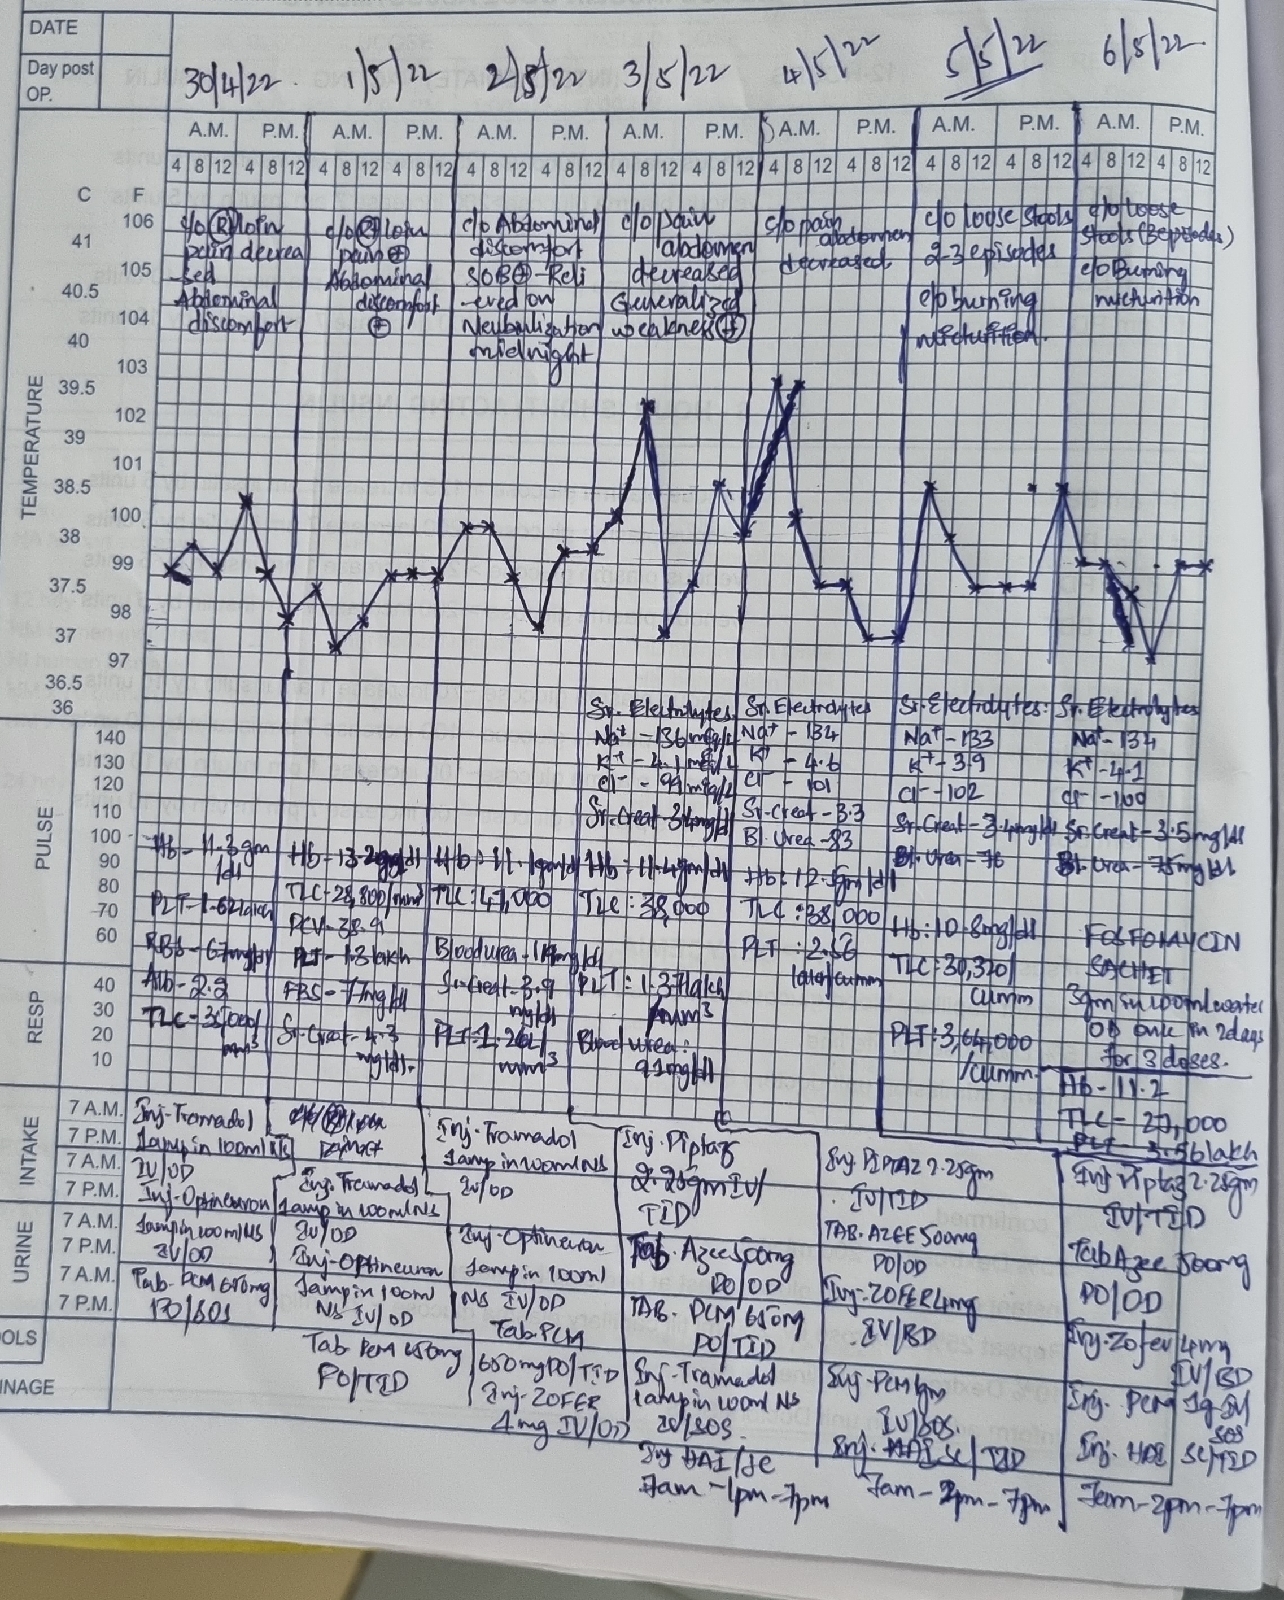 DATE
Day post
OP.
30/4/22
1/5/22
2/5/22
3/5/22
4/5/22
5/5/22
6/5/22
A.M. P.M. A.M. P.M. A.M. P.M. A.M. P.M. A.M. P.M. A.M. P.M. A.M. P.M.
4 8 12 4 8 12 4 8 12 4 8 12 4 8 12 4 8 12 4 8 12 4 8 12 4 8 12 4 8 12 4 8 12 4 8 12 4 8 12 4 8 12
C F
TEMPERATURE
106
41
105
40.5
104
40
103
39.5
102
39
101
38.5
100
38
99
37.5
98
37
97
36.5
36
c/o (R) loin
pain decrea
-sed
Abdominal
discomfort
c/o (R) loin
pain ⊕
Abdominal
discomfort
⊕
c/o Abdominal
discomfort
SOB ⊕ - Reli
-eved on
Neubulization
midnight
c/o pain
abdomen
decreased
Generalized
weakness ⊕
c/o pain
abdomen
decreased
c/o loose stools
2-3 episodes
c/o burning
micturition.
c/o loose
stools (3 episodes)
c/o Burning
micturition
PULSE
140
130
120
110
100
90
80
70
60
RESP
40
30
20
10
Hb - 11.3 gm
/dl
PLT - 1.62 lakh
RBS - 67mg/dl
Alb - 2.2
TLC - 35,000/
mm³
Hb - 13.2 gm/dl
TLC - 28,800/mm³
PCV - 38.9
PLT - 1.3 lakh
FBS - 77mg/dl
Sr. Creat - 4.3
mg/dl.
Hb : 11.1gm/dl
TLC : 47,000
Blood urea - 114mg/dl
Sr. Creat - 3.9
mg/dl
PLT: 1.26L/
mm³
Sr. Electrolytes
Na⁺ - 136 meq/L
K⁺ - 4.1 meq/L
Cl⁻ - 99 meq/L
Sr. Creat - 3.4mg/dl
Hb : 11.4gm/dl
TLC : 38,000
PLT : 1.37 lakh
/mm³
Blood urea :
91mg/dl
Sr. Electrolytes
Na⁺ - 134
K⁺ - 4.6
Cl⁻ - 101
Sr. Creat - 3.3
Bl. Urea - 83
Hb : 12.5gm/dl
TLC : 38,000
PLT : 2.56
lakh/cumm
Sr. Electrolytes:
Na⁺ - 133
K⁺ - 3.9
Cl⁻ - 102
Sr. Creat - 3.4mg/dl
Bl. Urea - 76
Hb : 10.8mg/dl
TLC : 30,320/
cumm
PLT : 3,64,000
/cumm
Sr. Electrolytes
Na⁺ - 134
K⁺ - 4.1
Cl⁻ - 100
Sr. Creat - 3.5mg/dl
Bl. Urea - 75mg/dl
FOSFOMYCIN
SACHET
3gm in 100ml water
OD once in 2 days
for 3 doses.
Hb - 11.2
TLC - 27,000
PLT - 3.56 lakh
INTAKE
7 A.M.
7 P.M.
7 A.M.
7 P.M.
URINE
7 A.M.
7 P.M.
7 A.M.
7 P.M.
OOLS
INAGE
Inj-Tramadol
1amp in 100ml NS
IV/OD
Inj-Optineuron
1amp in 100ml NS
IV/OD
Tab. PCM 650mg
PO/SOS
Inj. Tramadol
1amp in 100ml NS
IV/OD
Inj-Optineuron
1amp in 100ml
NS IV/OD
Tab. PCM 650mg
PO/TID
Inj. Tramadol
1amp in 100ml NS
IV/OD
Inj-Optineuron
1amp in 100ml
NS IV/OD
Tab. PCM
650mg PO/TID
Inj-ZOFER
4mg IV/OD
Inj. Piptaz
2.25gm IV/
TID
Tab. Azee 500mg
PO/OD
TAB. PCM 650mg
PO/TID
Inj-Tramadol
1amp in 100ml NS
IV/SOS.
Inj HAI/SC
7am-1pm-7pm
Inj PIPTAZ 2.25gm
IV/TID
TAB. AZEE 500mg
PO/OD
Inj-ZOFER 4mg
IV/BD
Inj-PCM 1gm
IV/SOS.
Inj. HAI SC/TID
7am-2pm-7pm
Inj Piptaz 2.25gm
IV/TID
Tab Azee 500mg
PO/OD
Inj-Zofer 4mg
IV/BD
Inj. PCM 1g IV
SOS
Inj. HAI SC/TID
7am-2pm-7pm